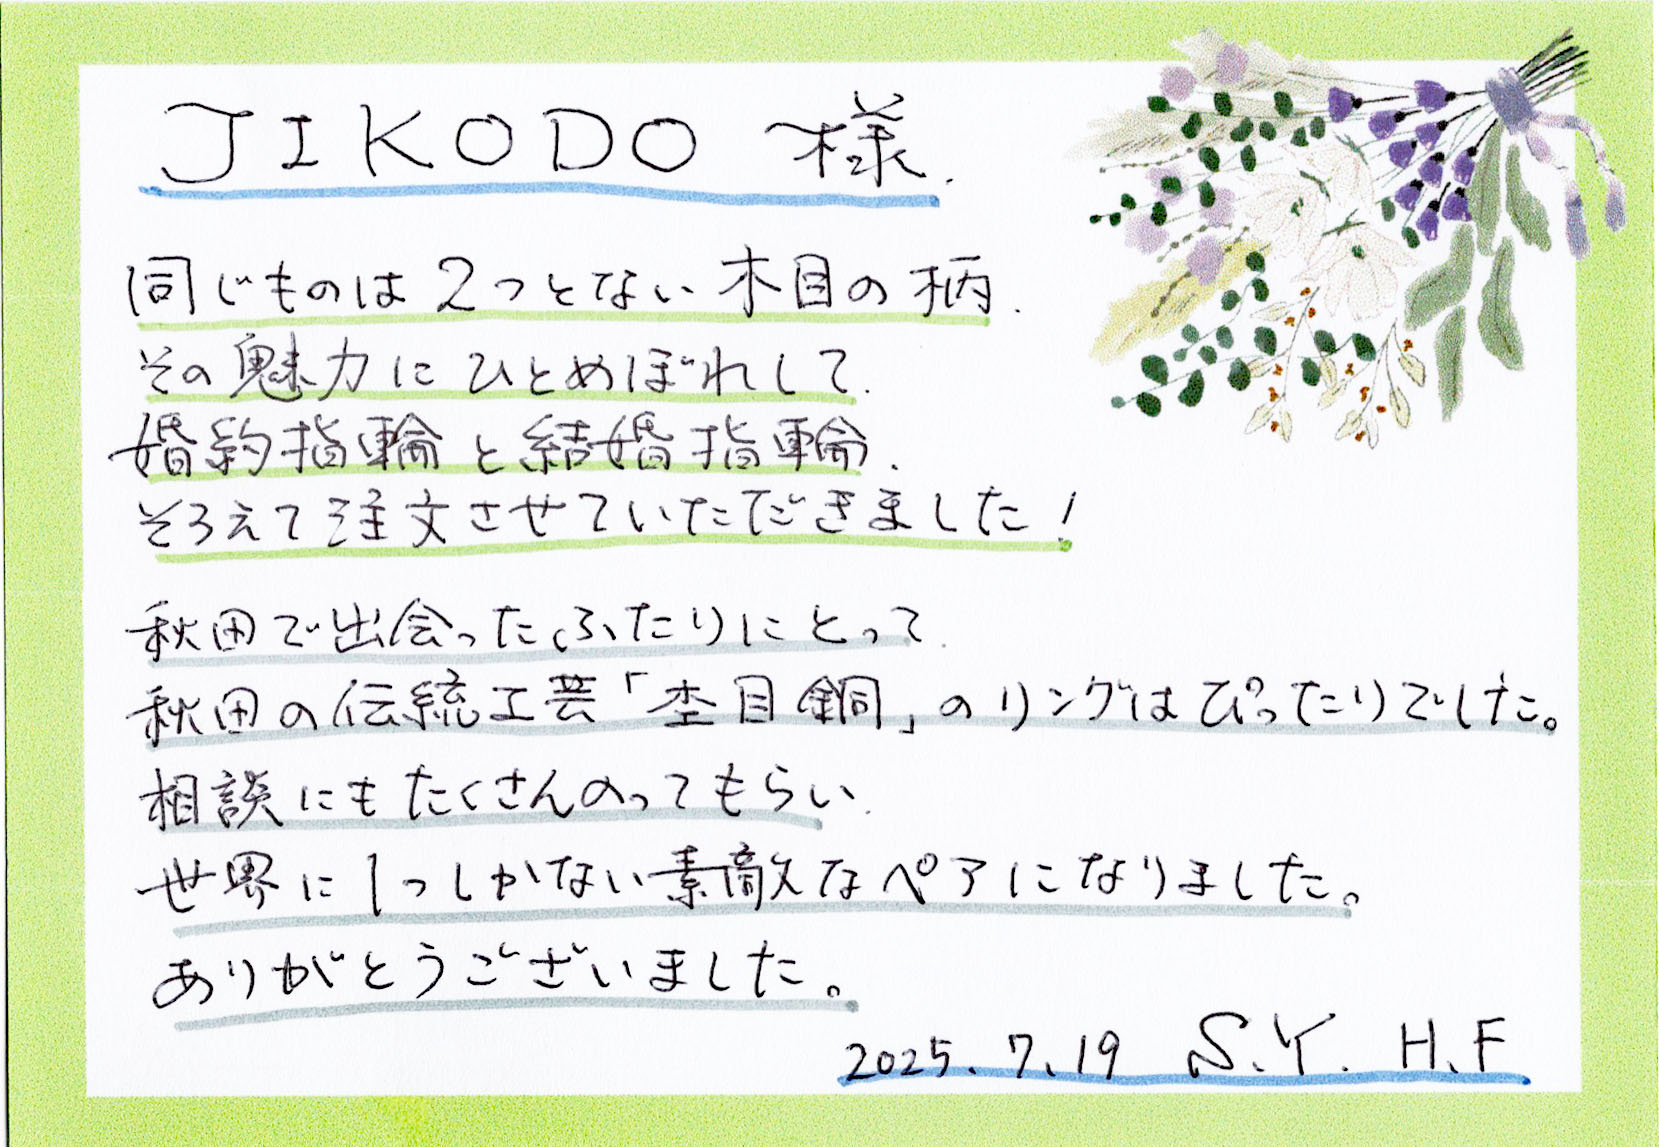 JIKODO 様.
同じものは2つとない木目の柄.
その魅力にひとめぼれして.
婚約指輪と結婚指輪.
そろえて注文させていただきました!
秋田で出会ったふたりにとって.
秋田の伝統工芸「杢目銅」のリングはぴったりでした。
相談にもたくさんのってもらい.
世界に1つしかない素敵なペアになりました。
ありがとうございました。
2025.7.19 S.Y. H.F